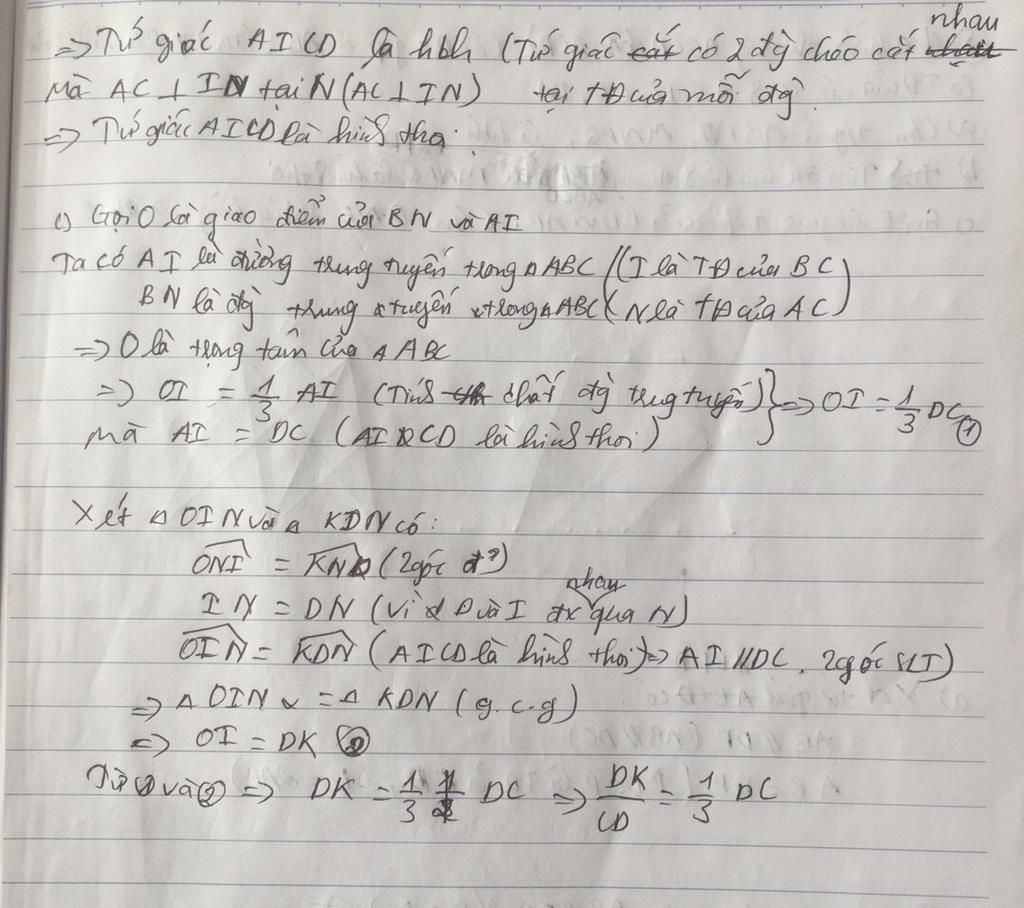 nhau
=> Tứ giác AICD là hbh (Tứ giác cắt có 2 đg̀ chéo cắt nhau
Mà AC ⊥ IN tại N (AC ⊥ IN) tại TĐ của mỗi đg̀.
=> Tứ giác AICD là hình thoi.
c) Gọi O là giao điểm của BN và AI
Ta có AI là đường trung tuyến trong Δ ABC (I là TĐ của BC)
BN là đg̀ trung tuyến trong Δ ABC (N là TĐ của AC)
=> O là trọng tâm của Δ ABC
=> OI = 1/3 AI (Tính chất đg̀ trung tuyến) } => OI = 1/3 DC ①
Mà AI = DC (AICD là hình thoi)
Xét Δ OIN và Δ KDN có:
ONI = KND (2 góc đ²)
nhau
IN = DN (Vì D và I đx qua N)
OIN = KDN (AICD là hình thoi => AI // DC. 2 góc SLT)
=> Δ OIN = Δ KDN (g.c.g)
=> OI = DK ②
Từ ① và ② => DK = 1/3 DC => DK/CD = 1/3 DC